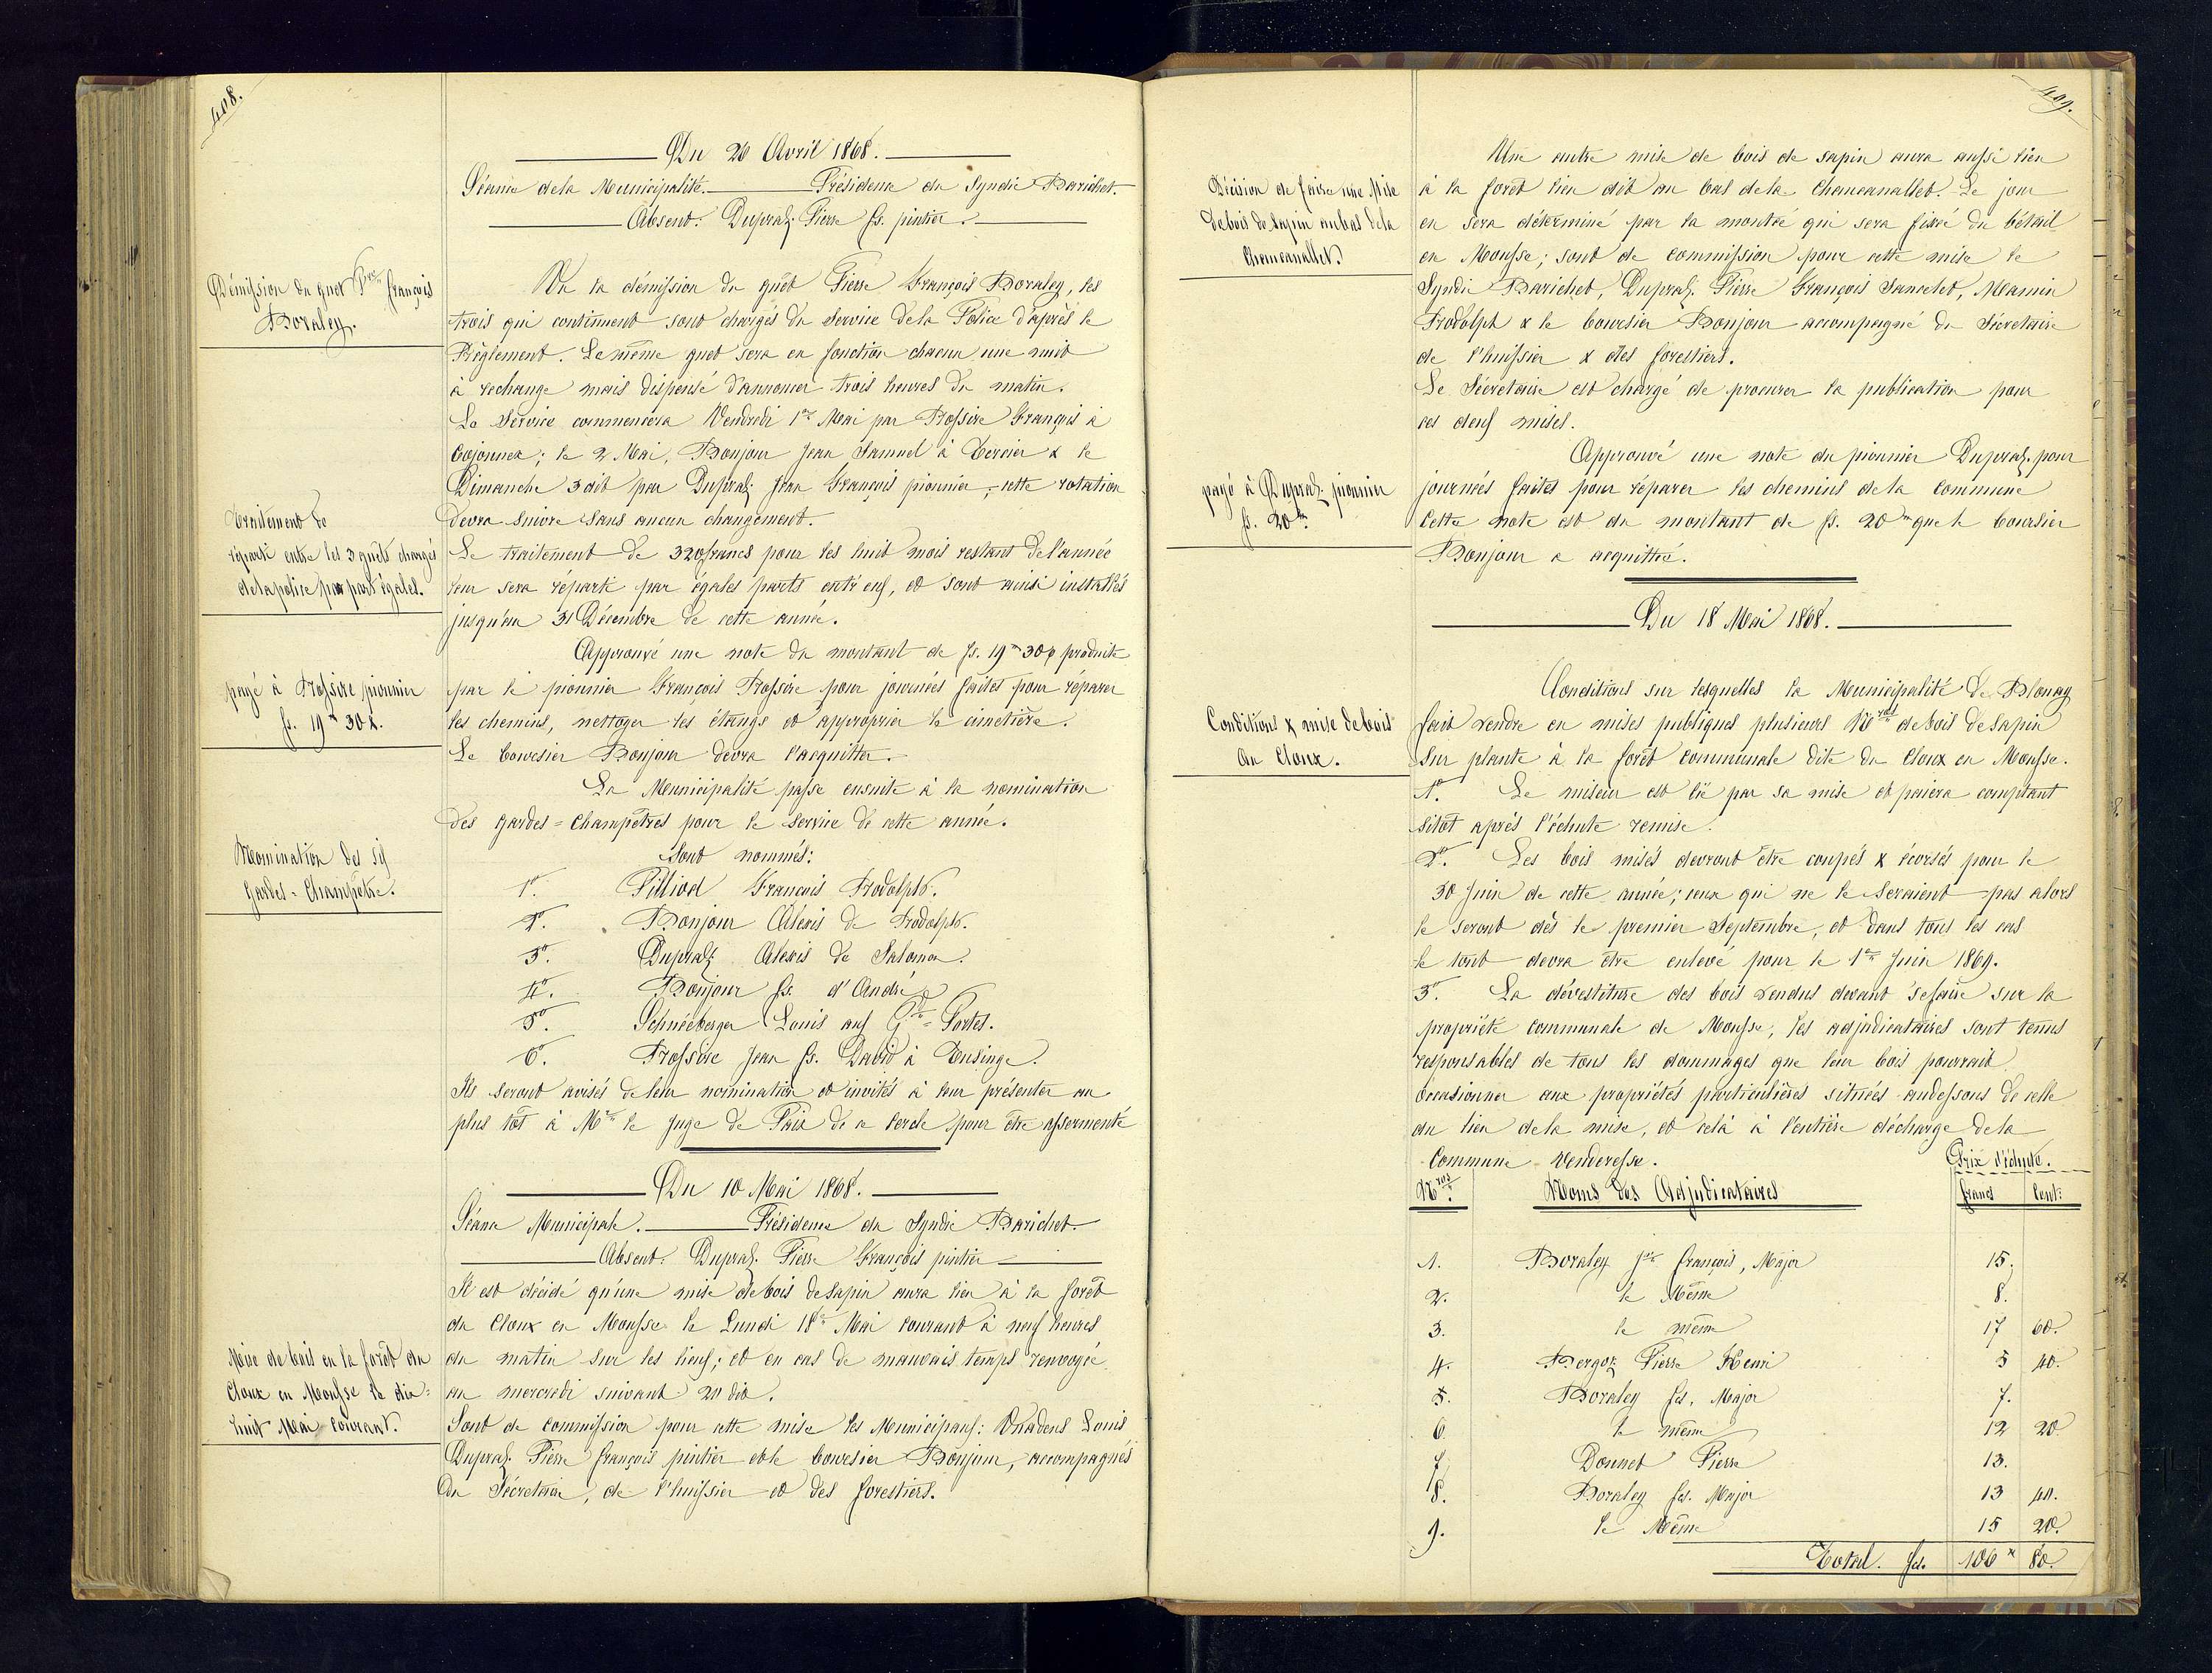 408.
Du 20 Avril 1868.
Séance de la Municipalité. Présidence du Syndic Barichet.
Absent. Dupraz Pierre fs. pintier.
Démission du guet Pre françois
Boraley.
Vu la démission du guêt Pierre François Boraley, les
trois qui continuent sont chargés du Service de la Police d'après le
Règlement. Le même guet sera en fonction chacun une nuit
à rechange mais dispensé d'annoncer trois heures du matin.
Le Service commencera Vendredi 1er Mai par Rossire François à
Cojonnex; le 2 Mai, Bonjour Jean Samuel à Tercier & le
Dimanche 3 dit par Dupraz Jean François pionnier; cette rotation
devra suivre sans aucun changement.
Traitement de
réparti entre les 3 guêts chargés
de la police par part égales.
Le traitement de 320 francs pour les huit mois restant de l'année
leur sera réparti par égales parts entr'eux, et sont ainsi installés
jusqu'au 31 Décembre de cette année.
payé à Rossire pionnier
fs. 19 " 30 c.
Approuvé une note du montant de fs. 19 " 30 c produite
par le pionnier François Rossire pour journées faites pour réparer
les chemins, nettoyer les étangs et approprier le cimetière.
Le boursier Bonjour devra l'acquitter.
Nomination des six
Gardes=Champêtre.
La Municipalité passe ensuite à la nomination
des gardes=Champêtres pour le service de cette année.
Sont nommés:
1o. Pilliod François Rodolph.
2o. Bonjour Alexis de Rodolph.
3o. Dupraz Alexis de Salomon.
4o. Bonjour fs. d'André
5o. Schnéeberger Louis aux Gdes=Portes.
6o. Rossire Jean fs. David à Tusinge.
Ils seront avisés de leur nomination et invités à leur présenter au
plus tôt à Mr le Juge de Paix de ce cercle pour être assermenté
Du 10 Mai 1868.
Séance Municipale. Présidence du Syndic Barichet
Absent. Dupraz Pierre François pintier
Mise de bois en la forêt du
Cloux en Mousse le dix=
huit Mai courant.
Il est décidé qu'une mise de bois de sapin aura lieu à la forêt
du Cloux en Mousse le Lundi 18e Mai courant à neuf heures
du matin sur les lieux; et en cas de mauvais temps renvoyée
au mercredi suivant 20 dit.
Sont de commission pour cette mise les Municipaux: Louis
Dupraz Pierre françois pintier et le boursier Bonjour, accompagnés
du Sécretaire, de l'huissier et des forestiers.
409.
Décision de faire une Mise
de bois de Sapin au bas de la
Chaucanallet.
Une autre mise de bois de sapin aura aussi lieu
à la forêt lieu dit au bas de la Chaucanallet. Le jour
en sera déterminé par la montée qui sera fixée du bétail
en Mousse; sont de commission pour cette mise le
Syndic Barichet, Dupraz Pierre François Sancelet, Mamin
Rodolph & le boursier Bonjour accompagné du Sécretaire
de l'huissier & des forestiers.
Le Sécretaire est chargé de procurer la publication pour
ces deux mises.
payé à Dupraz pionnier
fs. 20 "
Approuvé une note du pionnier Dupraz pour
journées faites pour réparer les chemins de la Commune
Cette note est du montant de fs. 20 " que le boursier
Bonjour a acquittée.
Du 18 Mai 1868.
Conditions & mise de bois
au Cloux.
Conditions sur lesquelles la Municipalité de Blonay
fait vendre en mises publiques plusieurs Nros de bois de Sapin
sur plante à la forêt communale dite du Cloux en Mousse.
1o. Le miseur est lié par sa mise et paiera comptant
sitôt après l'échute remise.
2o. Les bois misés devront être coupés & écorsés pour le
30 Juin de cette année; ceux qui ne le seraient pas alors
le seront dès le premier Septembre, et dans tous les cas
le tout devra être enlevé pour le 1er Juin 1869.
3o. La dévestiture des bois vendus devant se faire sur la
propriété communale de Mousse, les adjudicataires sont tenus
responsables de tous les dommages que leur bois pourrait
occasionner aux propriétés particulières situées au dessous de celle
du lieu de la mise, et celà à l'entière décharge de la
Commune Venderesse. Prix d'échute.
Nros. Noms des Adjudicataires francs Cent:
1. Boraley Jn françois, Major 15.
2. le Même 8.
3. le même 17 60.
4. Bergoz Pierre Henri 5 40.
5. Boraley fs. Major 7.
6. le même 12 20
7. Donnet Pierre 13.
8. Boraley fs. Major 13 40.
9. le Même 15 20.
Total. fs. 106 " 80.